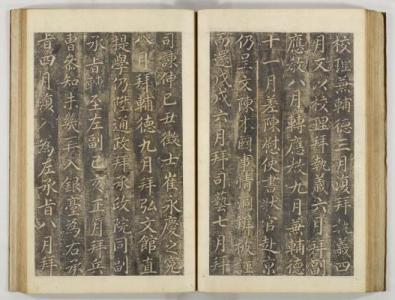 校理兼輔德三月拜執義四
月又以校理拜執義六月拜副
應教八月轉應教九月兼輔德
十一月差陳慰使書狀官赴京
仍呈文陳本國事情洞辨被誣
而還戊戌六月拜司藝七月拜
司諫伸己丑徵士崔永慶之冤
八月拜輔德九月拜弘文館直
提學仍陞通政拜承政院同副
承旨轉至左副己亥正月拜兵
曹參知未幾再入銀臺為右承
旨四月為左承旨八月拜